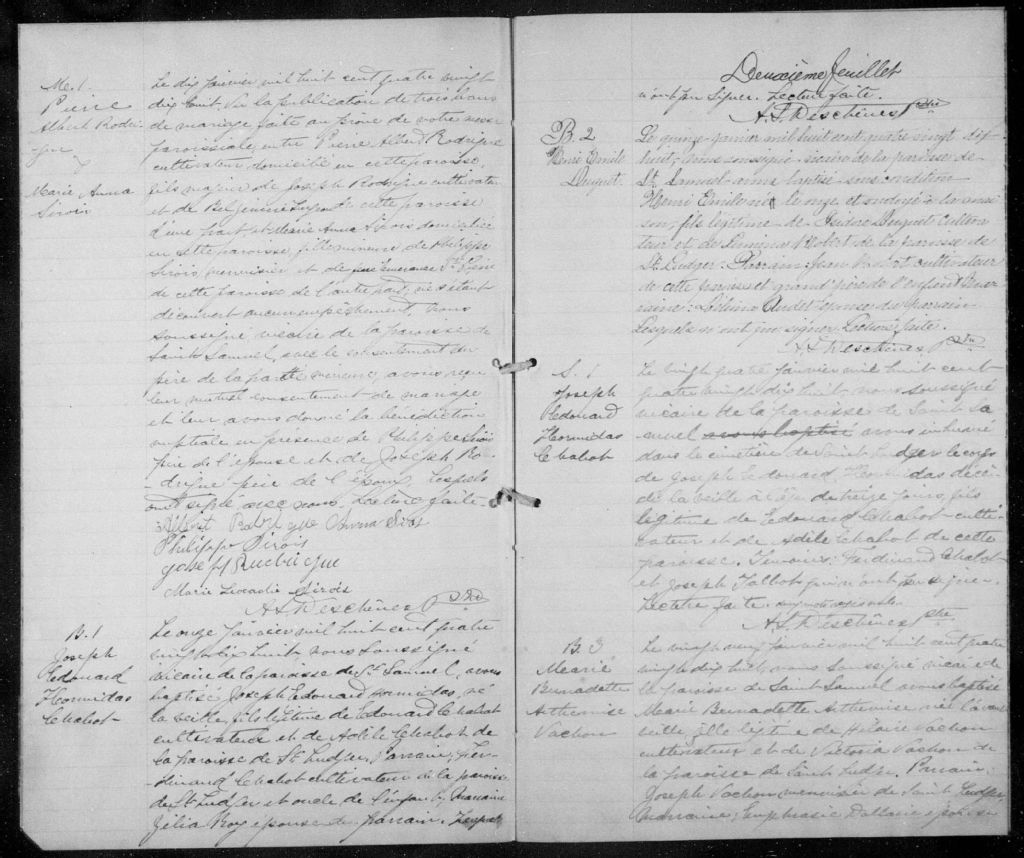 M. 1
Pierre
Albert Rodri-
gue
&
Marie Anna
Sirois
Le dix janvier mil huit cent quatre vingt
dix huit, Vu la publication de trois bans
de mariage faite au prône de notre messe
paroissiale, entre Pierre Albert Rodrigue
cultivateur domicilié en cette paroisse,
fils majeur de Joseph Rodrigue cultivateur
et de de cette paroisse
d'une part, et Marie Anna Sirois domiciliée
en cette paroisse, fille mineure de Philippe
Sirois, menuisier et de
de cette paroisse de l'autre part, ne s'étant
découvert aucun empêchement, Nous
soussigné vicaire de la paroisse de
Saint Samuel, avec le consentement du
père de la partie mineure, avons reçu
leur mutuel consentement de mariage
et leur avons donné la bénédiction
nuptiale en présence de Philippe Sirois
père de l'épouse et de Joseph Ro-
drigue père de l'époux, Lesquels
ont signé avec nous. Lecture faite.
Albert Rodrigue Anna Sirois
Philippe Sirois
Joseph Rodrigue
Marie Sirois
A. S. Deschênes Ptre
B. 1
Joseph
Edouard
Hormidas
Chabot
Le onze janvier mil huit cent quatre
vingt dix huit nous soussigné
vicaire de la paroisse de St Samuel, avons
baptisé Joseph Edouard Hormidas, né
la veille, fils légitime de Edouard Chabot
cultivateur et de Adèle Chabot de
la paroisse de St Ludger. Parrain, Fer-
dinand Chabot cultivateur de la paroisse
de St Ludger et oncle de l'enfant, Marraine
Zélia Roy épouse du parrain. Lesquels
Deuxième feuillet
n'ont pu signer. Lecture faite.
A. S. Deschênes Ptre
B. 2
Henri Emile
Duquet.
Le quinze janvier mil huit cent quatre vingt dix
huit, nous soussigné vicaire de la paroisse de
St. Samuel avons baptisé sous condition
Henri Emile né le onze et ondoyé à la mai-
son, fils légitime de Isidore Duquet cultiva-
teur et de Robert de la paroisse de
St. Ludger. Parrain: Jean cultivateur
de cette paroisse et grand père de l'enfant Mar-
raine: Audet épouse du parrain
Lesquels n'ont pu signer Lecture faite.
A. S. Deschênes Ptre
S. 1
Joseph
Edouard
Hormidas
Chabot
Le vingt quatre janvier mil huit cent
quatre vingt dix huit, nous soussigné
vicaire de la paroisse de Saint Sa
muel avons baptisé avons inhumé
dans le cimetière de Saint Ludger le corps
de Joseph Edouard Hormidas décé-
dé la veille à l'âge de treize jours, fils
légitime de Edouard Chabot culti-
vateur et de Adèle Chabot de cette
paroisse. Témoins: Ferdinand Chabot
et Joseph Talbot qui n'ont pu signer.
Lecture faite.
A. S. Deschênes ptre
B. 3
Marie
Bernadette
Arthemise
Vachon
Le vingt janvier mil huit cent quatre
vingt dix huit nous soussigné vicaire de
la paroisse de Saint Samuel avons baptisé
Marie Bernadette Arthemise née l'avant
veille fille légitime de Hilaire Vachon
cultivateur et de Victoria Vachon de
la paroisse de Saint Ludger. Parrain,
Joseph Vachon menuisier de Saint Ludger,
Marraine; Emphrasie Dallaire épouse